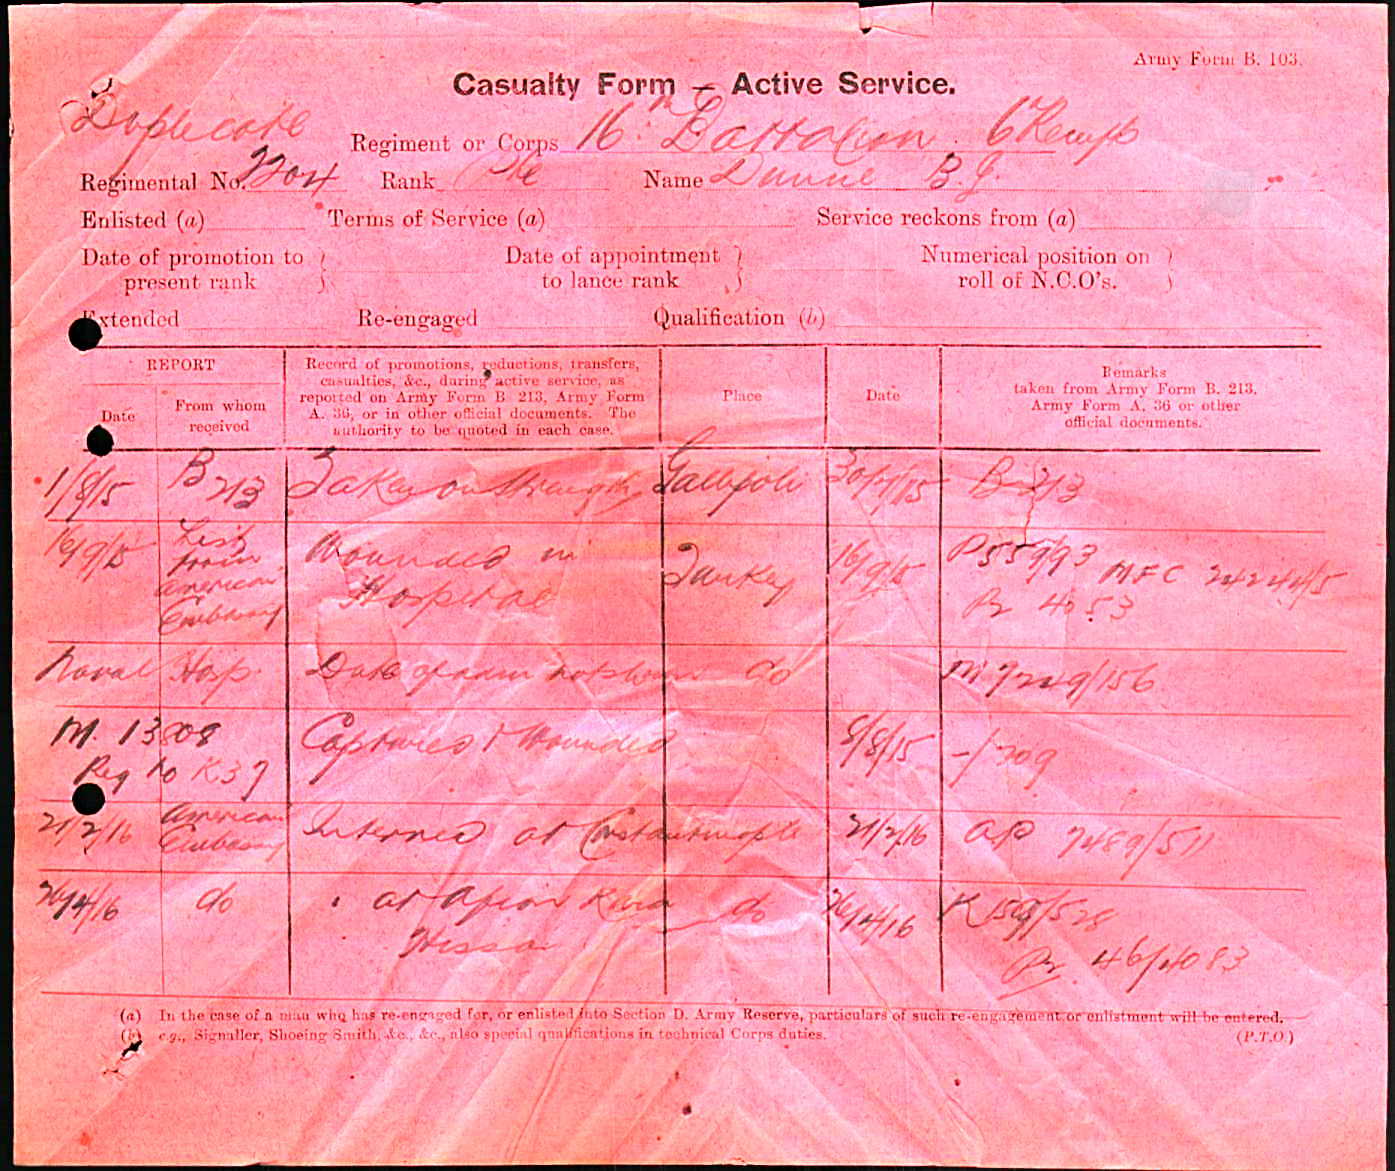 Army Form B. 103.
Casualty Form — Active Service.
Duplicate
Regiment or Corps 16th Battalion
Regimental No. Rank Pte Name Dunne B.J.
Enlisted (a) Terms of Service (a) Service reckons from (a)
Date of promotion to present rank } Date of appointment to lance rank } Numerical position on roll of N.C.O's. }
Extended Re-engaged Qualification (b)
REPORT
Date
From whom received
Record of promotions, reductions, transfers,
casualties, &c., during active service, as
reported on Army Form B 213, Army Form
A. 36, or in other official documents. The
authority to be quoted in each case.
Place
Date
Remarks
taken from Army Form B. 213,
Army Form A. 36 or other
official documents.
1/8/15 B 213 Taken on Strength Gallipoli 30/7/15 B 213
16/9/15 List from American Embassy Wounded in Hospital Turkey 16/9/15
4053
Naval Hosp. Date of adm not shown do
M. 13808 Captured & Wounded 8/8/15 -/709
Reg to K37
21/2/16 American Embassy Interned at Constantinople 21/2/16 AP 7489/511
26/4/16 do " at Afion Kara Hissa do 26/4/16 K159/528
46/4083
(a) In the case of a man who has re-engaged for, or enlisted into Section D. Army Reserve, particulars of such re-engagement or enlistment will be entered.
(b) e.g., Signaller, Shoeing Smith, &c., &c., also special qualifications in technical Corps duties. (P.T.O.)